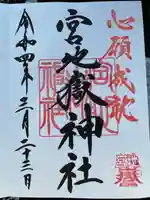 心願成就
宮地嶽神社
令和四年三月二十三日